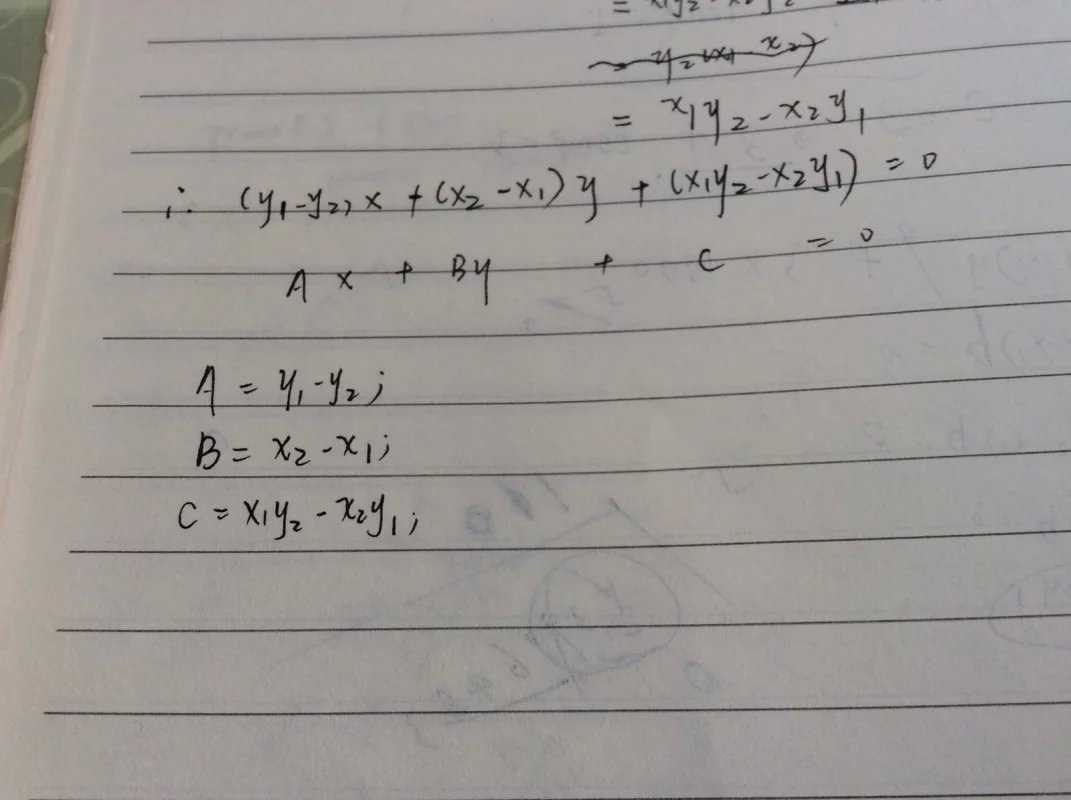 = x₁y₂ - x₂y₂
= x₁y₂ - x₂y₁
∴ (y₁-y₂)x + (x₂-x₁)y + (x₁y₂-x₂y₁) = 0
Ax + By + C = 0
A = y₁-y₂;
B = x₂-x₁;
C = x₁y₂ - x₂y₁;